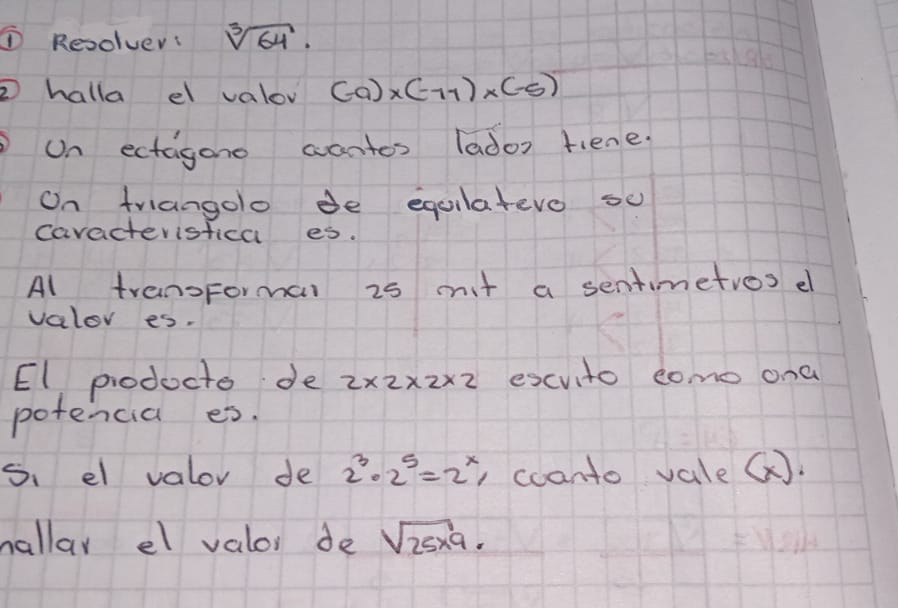 ① Resolver: ∛64.
② halla el valor (-9)x(-11)x(-5)
Un ectágono cuantos lados tiene.
Un triangulo de equilatero su
caracteristica es.
Al transformar 25 mit a sentimetros el
valor es.
El producto de 2x2x2x2 escrito como una
potencia es.
Si el valor de 2³·2⁵=2ˣ, cuanto vale (x).
hallar el valor de √25x9.